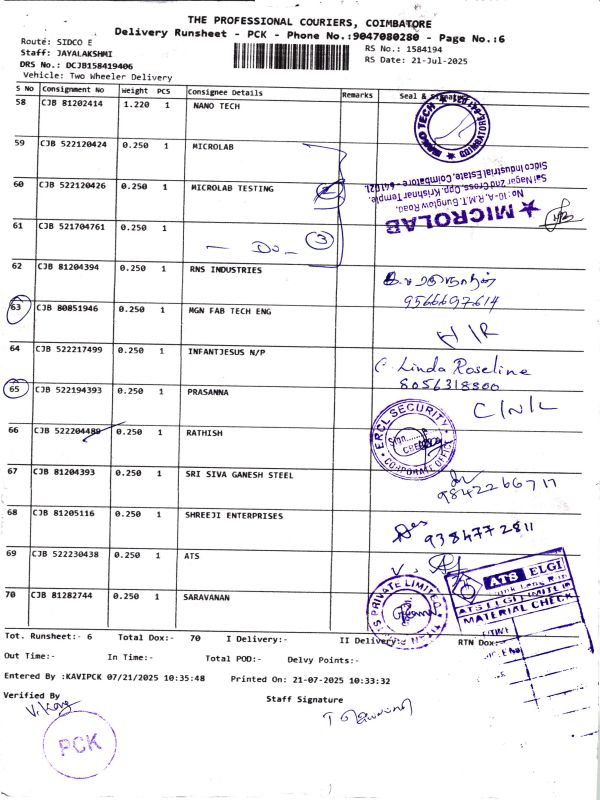 THE PROFESSIONAL COURIERS, COIMBATORE
Delivery Runsheet - PCK - Phone No.:9047080280 - Page No.:6
Route: SIDCO E
RS No.: 1584194
Staff: JAYALAKSHMI
RS Date: 21-Jul-2025
DRS No.: DCJB158419406
Vehicle: Two Wheeler Delivery
S No Consignment No Weight PCS Consignee Details Remarks Seal & Signature
58 CJB 81202414 1.220 1 NANO TECH
NANO TECH COIMBATORE
59 CJB 522120424 0.250 1 MICROLAB
60 CJB 522120426 0.250 1 MICROLAB TESTING 2
★ MICROLAB
No:10-A, R.M.T. Bunglow Road,
Sai Nagar 2nd Cross, Opp. Krishnar Temple,
Sidco Industrial Estate, Coimbatore - 641021.
61 CJB 521704761 0.250 1 - Do - 3
62 CJB 81204394 0.250 1 RNS INDUSTRIES
9566697614
63 CJB 80851946 0.250 1 MGN FAB TECH ENG
H/R
64 CJB 522217499 0.250 1 INFANTJESUS N/P
C Linda Roseline
8056318800
65 CJB 522194393 0.250 1 PRASANNA
C/N/L
66 CJB 522204489 0.250 1 RATHISH
ERCL SECURITY
Sign
CORPORATE OFFICE
67 CJB 81204393 0.250 1 SRI SIVA GANESH STEEL
9842266717
68 CJB 81205116 0.250 1 SHREEJI ENTERPRISES
9384772811
69 CJB 522230438 0.250 1 ATS
ATS ELGI
ATS ELGI LIMITED
MATERIAL CHECK
70 CJB 81282744 0.250 1 SARAVANAN
PRIVATE LIMITED
Tot. Runsheet:- 6 Total Dox:- 70 I Delivery:- II Delivery:- RTN Dox:-
Out Time:- In Time:- Total POD:- Delvy Points:-
Entered By :KAVIPCK 07/21/2025 10:35:48 Printed On: 21-07-2025 10:33:32
Verified By
Staff Signature
PCK